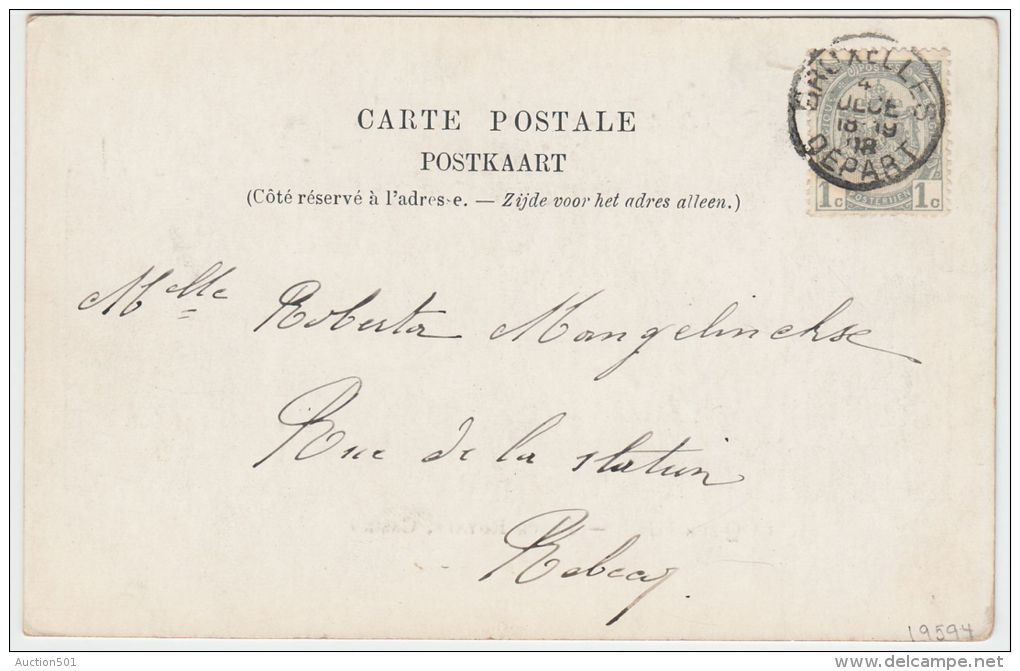 BRUXELLES
4
DECE
18-19
08
DEPART
POSTES
1c POSTERIJEN 1c
CARTE POSTALE
POSTKAART
(Côté réservé à l'adresse. — Zijde voor het adres alleen.)
Melle Roberta Mangelinckse
Rue de la station
Rebecq
19594
Auction501
delcampe.net